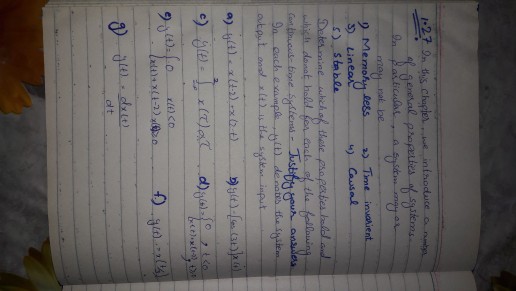 1.27 In this chapter, we introduce a number
of general properties of systems.
In particular, a system may or
may not be
1) Memory less 2) Time invarient
3) Linear 4) Causal
5) Stable
Determine which of these properties hold and
which donot hold for each of the following
continuous-time systems - Justify your answers
In each example, y(t) denotes the system
output and x(t) is the system input
a) y(t) = x(t-2) + x(2-t) b) y(t) = [cos(3t)] x(t)
c) y(t) = ∫ x(τ) dτ d) y(t) = { 0 , t<0
e) y(t) = { 0 x(t)<0 f) y(t) = x(t/3)
{ x(t) + x(t-2)
g) y(t) = dx(t)
dt